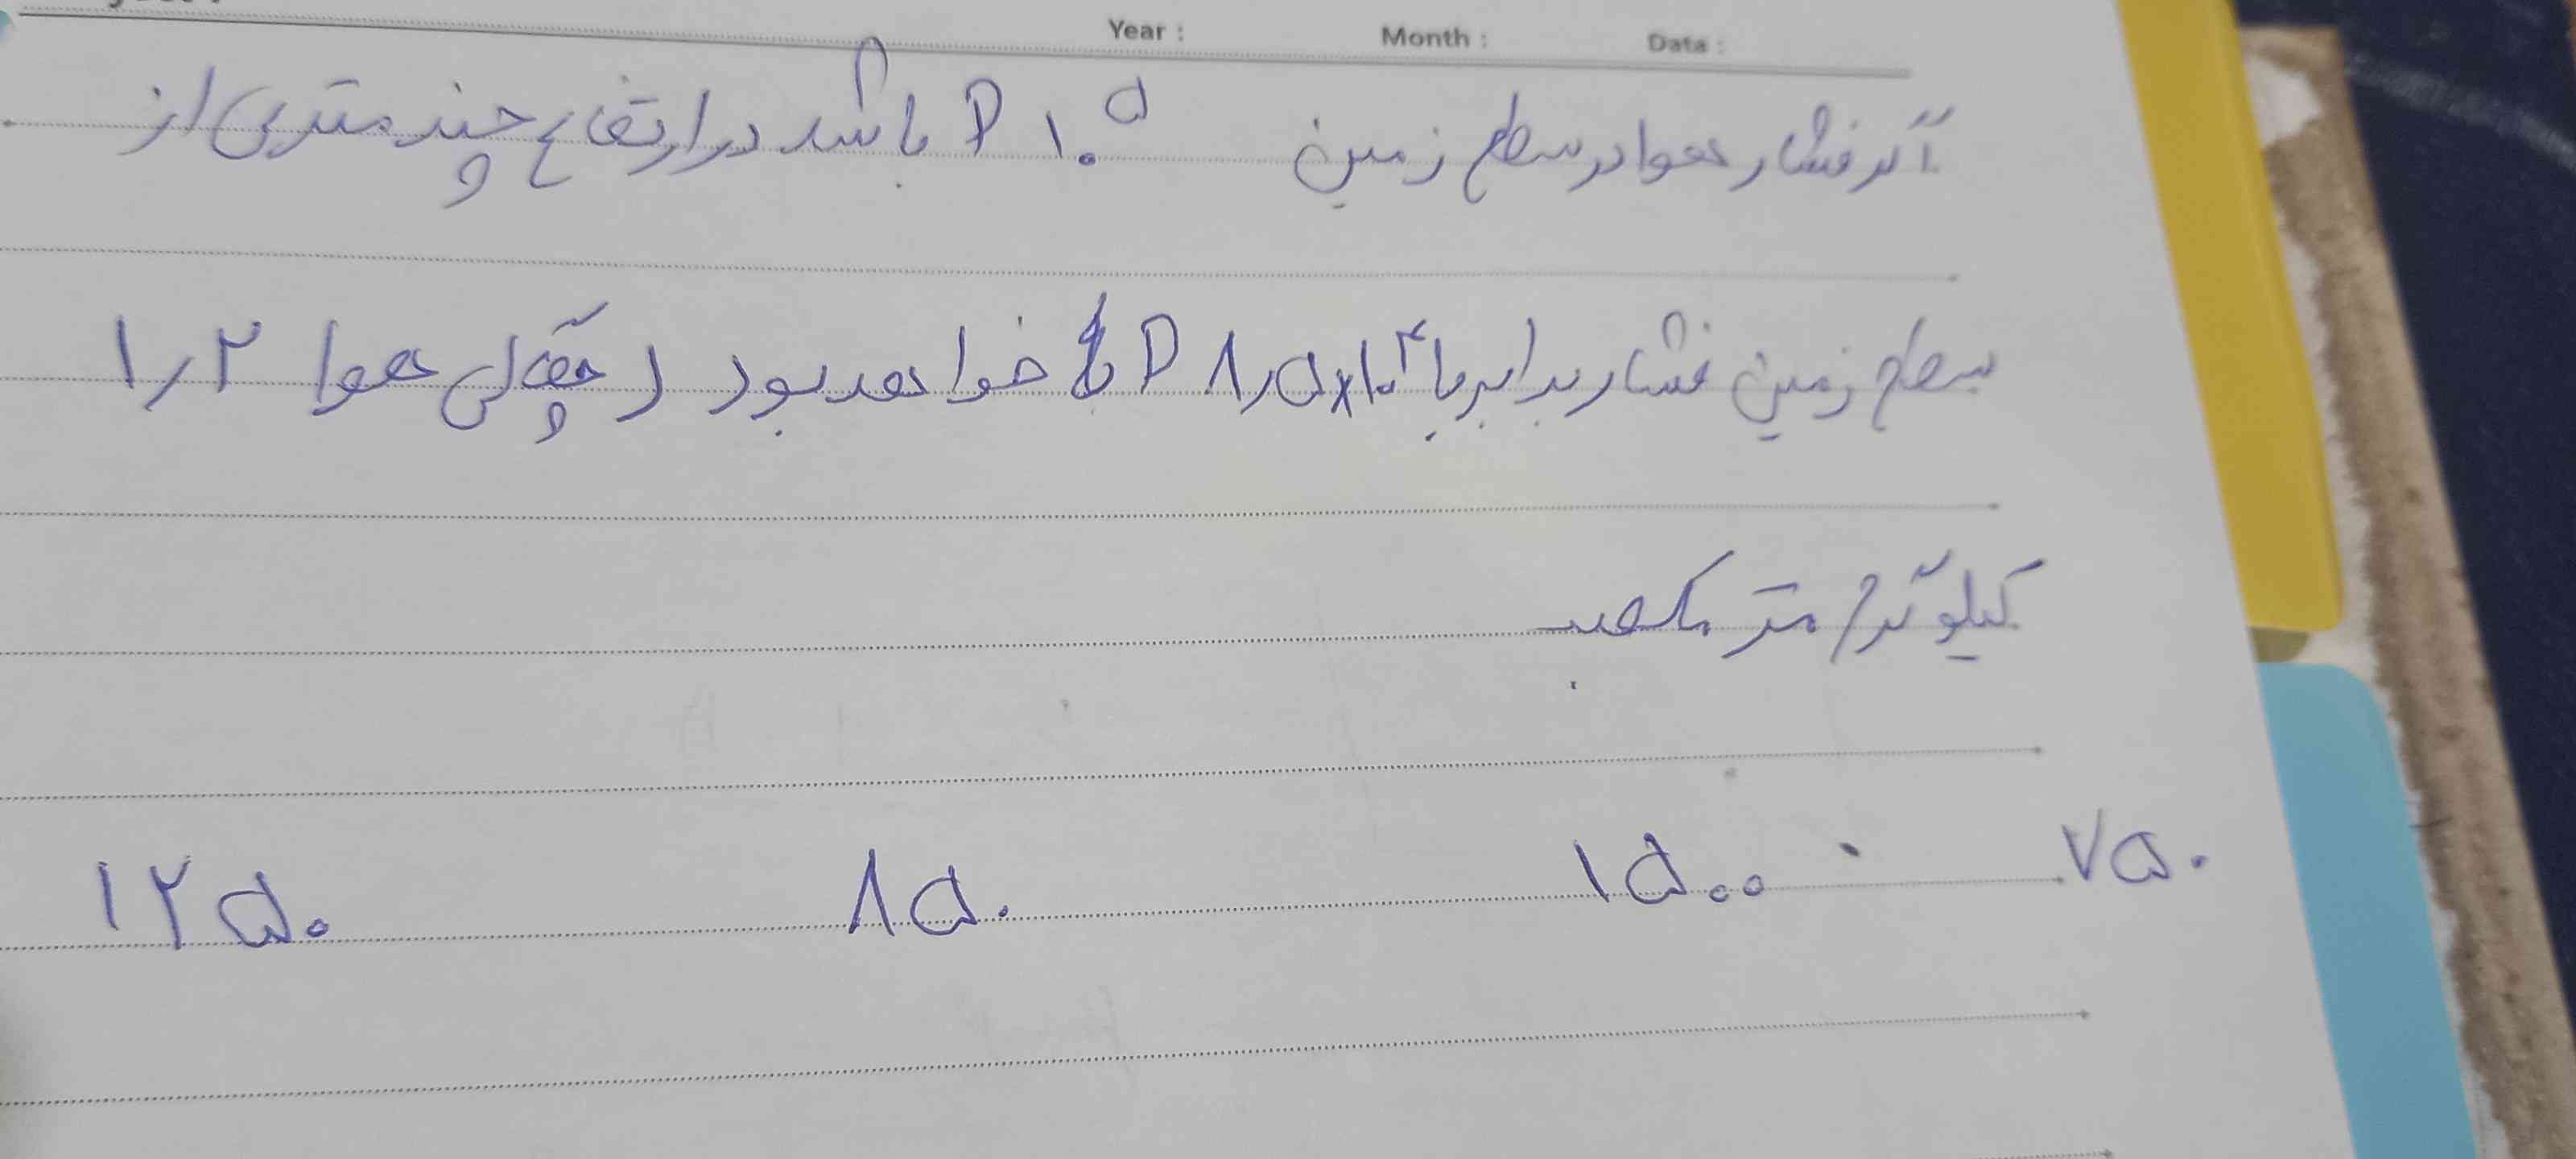 Year : Month : Data :
اگر فشار هوا در سطح زمین ۱۰^۵ P باشد در ارتفاع چند متری از
سطح زمین فشار برابر با ۸٫۵×۱۰^۴ P خواهد بود (چگالی هوا ۱٫۲
کیلوگرم متر مکعب
۷۵۰ ۱۵۰۰ ۸۵۰ ۱۲۵۰